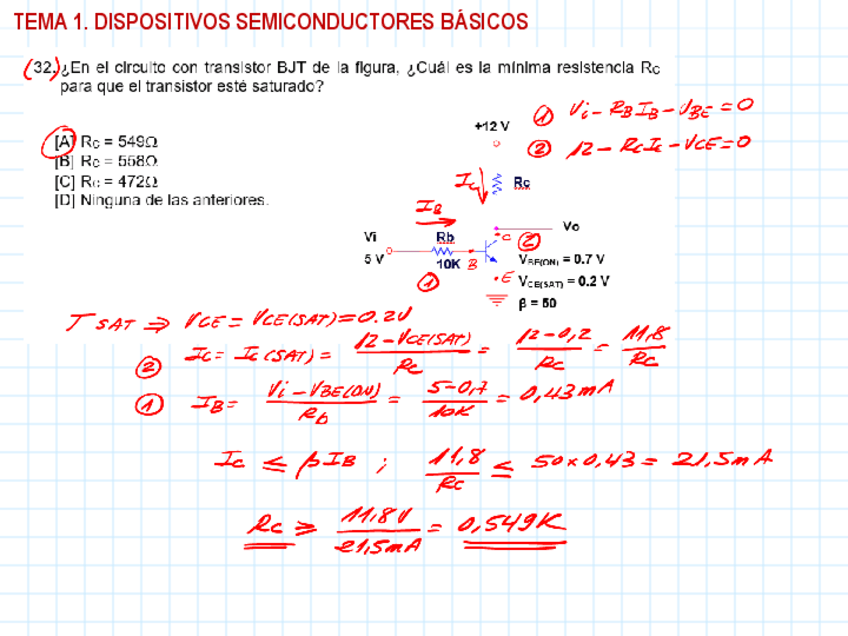 TEMA 1. DISPOSITIVOS SEMICONDUCTORES BÁSICOS
(32.) ¿En el circuito con transistor BJT de la figura, ¿Cuál es la mínima resistencia RC
para que el transistor esté saturado?
[A] RC = 549Ω
[B] RC = 558Ω
[C] RC = 472Ω
[D] Ninguna de las anteriores.
① Vi - RB IB - VBE = 0
② 12 - RC IC - VCE = 0
+12 V
IC
Rc
IB
Vi
Rb
C
②
Vo
5 V
10K
B
①
E
VBE(ON) = 0.7 V
VCE(SAT) = 0.2 V
β = 50
T SAT ⇒ VCE = VCE(SAT) = 0.2V
② IC = IC(SAT) = 12 - VCE(SAT) / RC = 12 - 0,2 / RC = 11,8 / RC
① IB = Vi - VBE(ON) / Rb = 5 - 0,7 / 10K = 0,43 mA
IC ≤ βIB ; 11,8 / RC ≤ 50 x 0,43 = 21,5 mA
RC ≥ 11,8V / 21,5mA = 0,549K